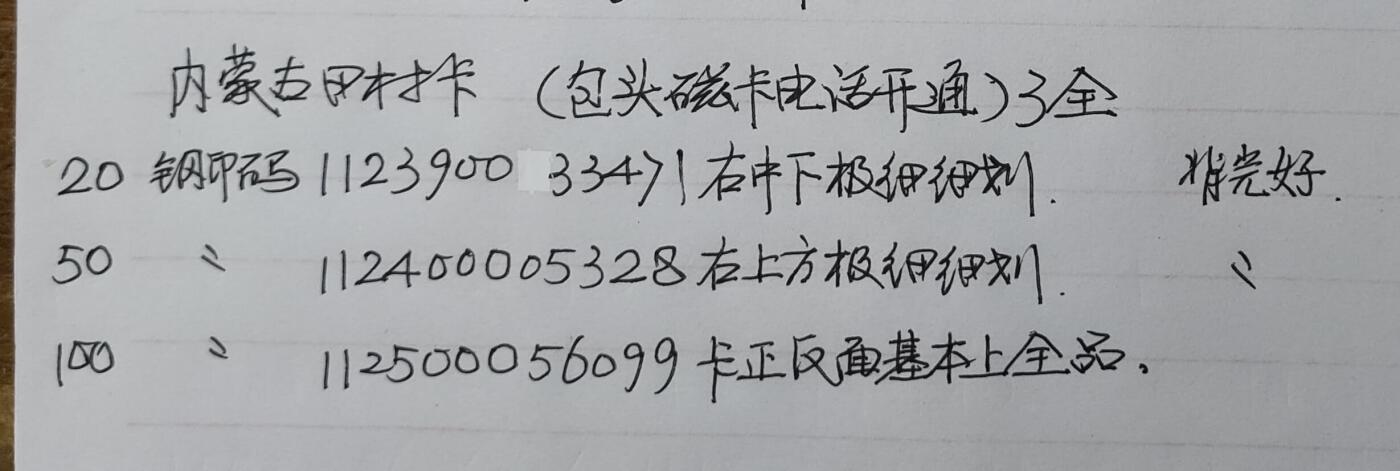 内蒙古田村卡 (包头磁卡电话开通)3全
20 钢印码 1123900 33471右中下极细细划. 背完好.
50 〃 112400005328右上方极细细划. 〃
100 〃 112500056099卡正反面基本上全品.